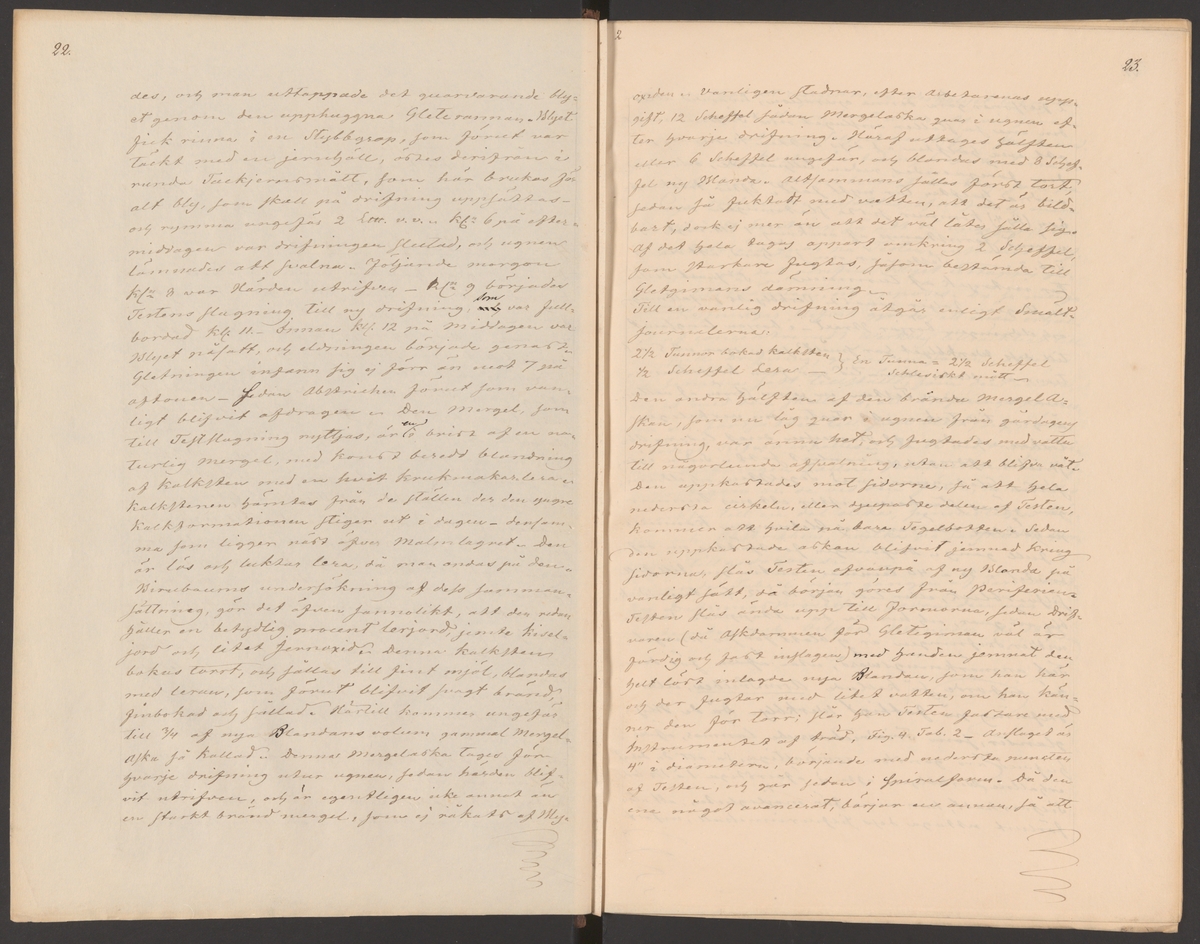 22.
des, och man uttappade det quarvarande bly-
et genom den upphuggna Gleterännan. Blyet
fick rinna i en Stybbgrop, som förut var
täckt med en jernhäll, östes derifrån i
runda Tackjernsmått, som här brukas för
alt bly, som skall på drifning uppsättas
och rymma ungefär 2 v.v. kl. 6 på efter-
middagen var drifningen slutad, och ugnen
lämnades att svalna. Följande morgon
kl. 8 var Härden utrifven – kl. 9 började
Testens slagning till ny drifning, som var full-
bordad kl. 11. – Innan kl. 12 på Middagen var
Blyet påsatt, och eldningen började genast.
Gletningen infann sig ej förr än mot 7 på
aftonen – Sedan Abstrichen förut som van-
ligt blifvit afdragen. Den Mergel, som
till Testslagning nyttjas, är en i brist af en na-
turlig mergel, med konst beredd blandning
af kalksten med en hvit krukmakarlera.
Kalkstenen hämtas från de ställen der den yngre
kalkformationen stiger ut i dagen – densam-
ma som ligger näst öfver Malmlagret. Den
är lös och luktar lera, då man andas på den.
Birnbaums undersökning af dess samman-
sättning, gör det äfven sannolikt, att den redan
håller en betydlig procent lerjord, jemte kisel-
jord och litet Jernoxid. Denna kalksten
bokas torrt, och sållas till fint mjöl, blandas
med leran, som förut blifvit svagt bränd,
finbokad och sållad. Härtill kommer ungefär
till 3/4 af nya Blandans volum gammal Mergel-
Aska så kallad. Denna Mergelaska tages för
hvarje drifning utur ugnen, sedan härden blif-
vit utrifven, och är egentligen icke annat än
en starkt bränd mergel, som ej råkats af Bly-
2
23.
oxiden. Vanligen stadnar, efter Arbetarenas upp-
gift, 12 Scheffel sådan Mergelaska quar i ugnen ef-
ter hvarje drifning. Häraf uttages hälften
eller 6 Scheffel ungefär, och blandas med 8 Schef-
fel ny Blanda. Altsammans sållas först torrt,
sedan så fuktadt med vatten, att det är bild-
bart, dock ej mer än att det väl låter sålla sig.
Af det hela tages appart omkring 2 Scheffel,
som starkare fugtas, såsom bestämda till
Gletgimans dämning.
Till en vanlig drifning åtgår enligt Smält-
journalerna:
2 1/2 Tunnor bokad kalksten } En Tunna = 2 1/2 Scheffel
1/2 Scheffel Lera – Schlesiskt mått –
Den andra hälften af den brända Mergel A-
skan, som nu låg quar i ugnen från gårdagens
drifning, var ännu het, och fugtades med vatten
till någorlunda afsvalning, utan att blifva våt.
Den uppkastades mot sidorna, så att hela
nedersta cirkeln, eller djupaste delen af Testen,
kommer att hvila på bara Tegelbotten. Sedan
den uppkastade askan blifvit jemnad kring
sidorna, slås Testen ofvanpå af ny Blanda på
vanligt sätt, då början göres från Periferien.
Testen slås ända upp till Formorna, sedan Drif-
varen (då Askdammen för Gletgiman väl är
färdig och fast inslagen) med handen jemnat den
helt löst inlagda nya Blandan, som han här
och der fugtar med litet vatten, om han kän-
ner den för torr; slår han Testen fastare med
Instrumentet af träd, Fig. 4. Tab. 2 – Anslaget är
4" i diametern, börjande med nedersta puncten
af Testen, och går sedan i Spiralform. Då den
ene något avancerat, börjar en annan, så att